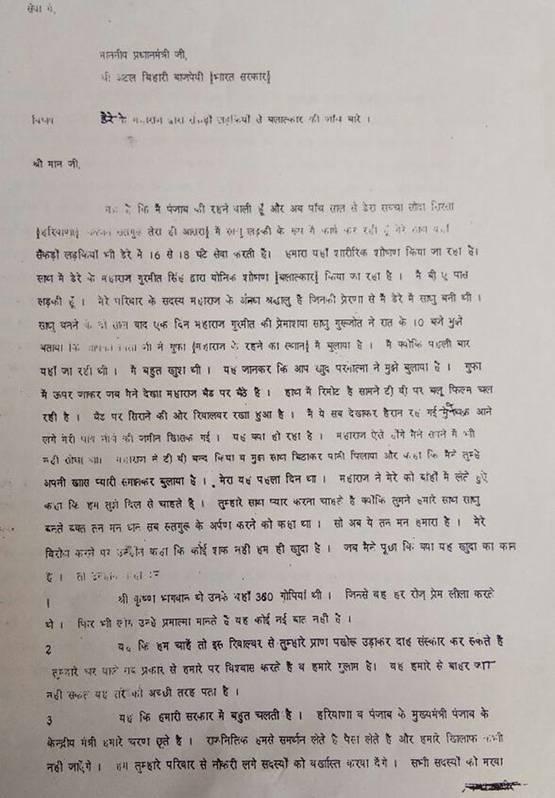 सेवा में,
माननीय प्रधानमंत्री जी,
श्री अटल बिहारी बाजपेयी [भारत सरकार]
विषय डेरे के महाराज द्वारा सैकड़ों लड़कियों से बलात्कार की जाँच बारे ।
श्री मान जी,
यह है कि मैं पंजाब की रहने वाली हूँ और अब पाँच साल से डेरा सच्चा सौदा सिरसा
[हरियाणा] सतगुरु तेरा ही आसरा] में साधु लड़की के रूप में कार्य कर रही हूँ मेरे साथ यहाँ
सैकड़ों लड़कियाँ भी डेरे में 16 से 18 घंटे सेवा करती है। हमारा यहाँ शारीरिक शोषण किया जा रहा है।
साथ में डेरे के महाराज गुरमीत सिंह द्वारा योनिक शोषण [बलात्कार] किया जा रहा है । मैं बी ए पास
लड़की हूँ । मेरे परिवार के सदस्य महाराज के अंनध श्रद्धालु है जिनकी प्रेरणा से मैं डेरे में साधु बनी थी ।
साधु बनने के दो साल बाद एक दिन महाराज गुरमीत की प्रेमशिष्या साधु गुरूजोत ने रात के 10 बजे मुझे
बताया कि आपको पिता जी ने गुफा [महाराज के रहने का स्थान] में बुलाया है । मैं क्योंकि पहली बार
यहां जा रही थी । मैं बहुत खुश थी । यह जानकर कि आप खुद परमात्मा ने मुझे बुलाया है । गुफा
में ऊपर जाकर जब मैंने देखा महाराज बैड पर बैठे है । हाथ में रिमोट है सामने टी वी पर ब्लू फिल्म चल
रही है । बैड पर सिराने की ओर रिवालवर रखा हुआ है । मैं ये सब देखकर हैरान रह गई मुझे चक्कर आने
लगे मेरी पाव नीचे की जमीन खिसक गई । यह क्या हो रहा है । महाराज ऐसे होंगे मैंने सपने में भी
नहीं सोचा था। महाराज ने टी वी बन्द किया व मुझे साथ बिठाकर पानी पिलाया और कहा कि मैंने तुम्हें
अपनी खास प्यारी समझकर बुलाया है । मेरा यह पहला दिन था । महाराज ने मेरे को बांहों में लेते हुऐ
कहा कि हम तुझे दिल से चाहते है । तुम्हारे साथ प्यार करना चाहते है क्योंकि तुमने हमारे साथ साधु
बनते वक्त तन मन धन सब सतगुरू के अर्पण करने को कहा था । सो अब ये तन मन हमारा है । मेरे
विरोध करने पर उन्होंने कहा कि कोई शक नही हम ही खुदा है । जब मैंने पूछा कि क्या यह खुदा का काम
है । तो उन्होंने कहा :-
1 श्री कृष्ण भगवान थे उनके यहाँ 360 गोपियां थी । जिनसे वह हर रोज प्रेम लीला करते
थे । फिर भी लोग उन्हे प्रमात्मा मानते है यह कोई नई बात नही है ।
2 यह कि हम चाहें तो इस रिवाल्वर से तुम्हारे प्राण पखेरू उड़ाकर दाह संस्कार कर सकते है
तुम्हारे घर वाले हर प्रकार से हमारे पर विश्वास करते है व हमारे गुलाम है। वह हमारे से बाहर जा
नही सकते यह तेरे को अच्छी तरह पता है ।
3 यह कि हमारी सरकार में बहुत चलती है । हरियाणा व पंजाब के मुख्यमंत्री पंजाब के
केन्द्रीय मंत्री हमारे चरण छूते है । राजनितिक हमसे समर्थन लेते है पैसा लेते है और हमारे खिलाफ कभी
नही जाएँगे । हम तुम्हारे परिवार से नौकरी लगे सदस्यों को बर्खास्त करवा देंगे । सभी सदस्यों को मरवा